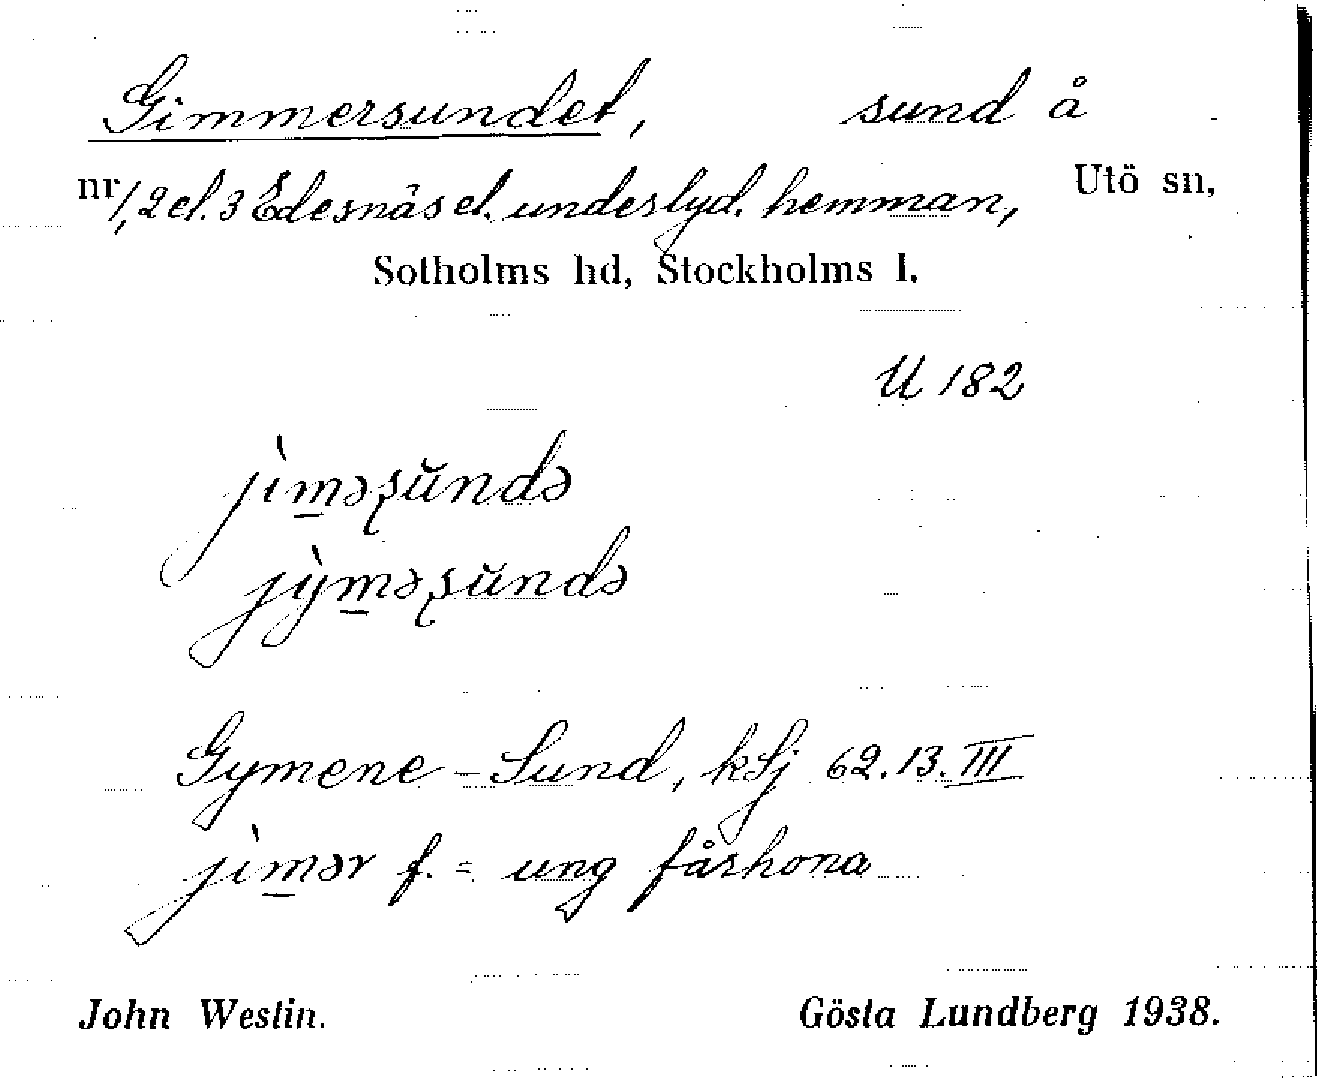 Gimmersundet, sund å
nr 1, 2 el. 3 Edesnäs el. underlyd. hemman, Utö sn,
Sotholms hd, Stockholms l.
U 182
jìm̱əʂŭndə
jỳm̱əʂŭndə
Gymene-Sund, kSj 62.13.III
jìm̱ər f. = ung fårhona
John Westin. Gösta Lundberg 1938.